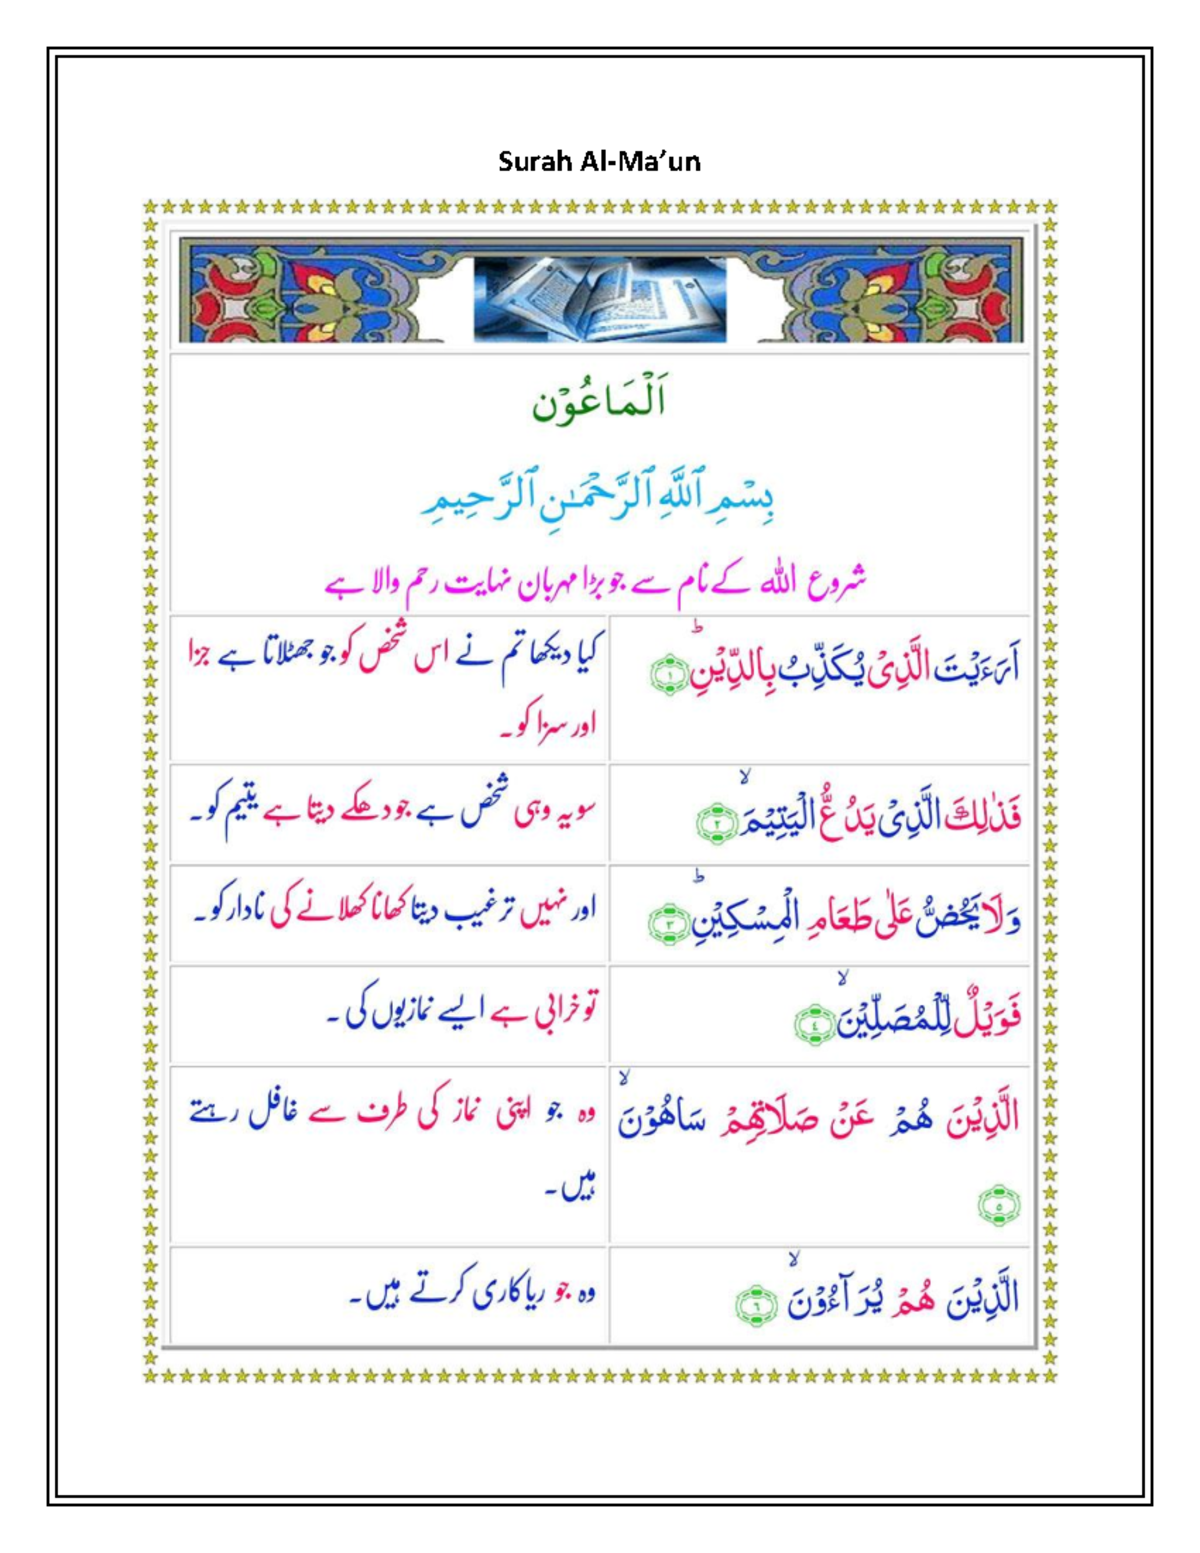 Surah Al-Ma’un
اَلْمَاعُوْن
بِسْمِ ٱللَّهِ ٱلرَّحْمَـٰنِ ٱلرَّحِيمِ
شروع اللہ کے نام سے جو بڑا مہربان نہایت رحم والا ہے
اَرَءَيْتَ الَّذِىْ يُكَذِّبُ بِالدِّيْنِؕ ﴿۱﴾
کیا دیکھا تم نے اس شخص کو جو جھٹلاتا ہے جزا
اور سزا کو۔
فَذٰلِكَ الَّذِىْ يَدُعُّ الْيَتِيْمَۙ ﴿۲﴾
سو یہ وہی شخص ہے جو دھکے دیتا ہے یتیم کو۔
وَلَا يَحُضُّ عَلٰى طَعَامِ الْمِسْكِيْنِؕ ﴿۳﴾
اور نہیں ترغیب دیتا کھانا کھلانے کی نادار کو۔
فَوَيْلٌ لِّلْمُصَلِّيْنَۙ ﴿٤﴾
تو خرابی ہے ایسے نمازیوں کی ۔
الَّذِيْنَ هُمْ عَنْ صَلَاتِهِمْ سَاهُوْنَۙ
﴿۵﴾
وہ جو اپنی نماز کی طرف سے غافل رہتے
ہیں۔
الَّذِيْنَ هُمْ يُرَآءُوْنَۙ ﴿٦﴾
وہ جو ریاکاری کرتے ہیں۔